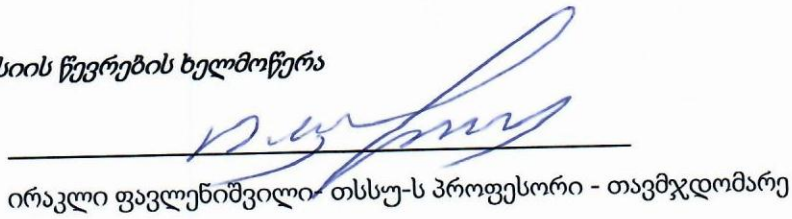 სიის წევრების ხელმოწერა
ირაკლი ფავლენიშვილი- თსსუ-ს პროფესორი - თავმჯდომარე